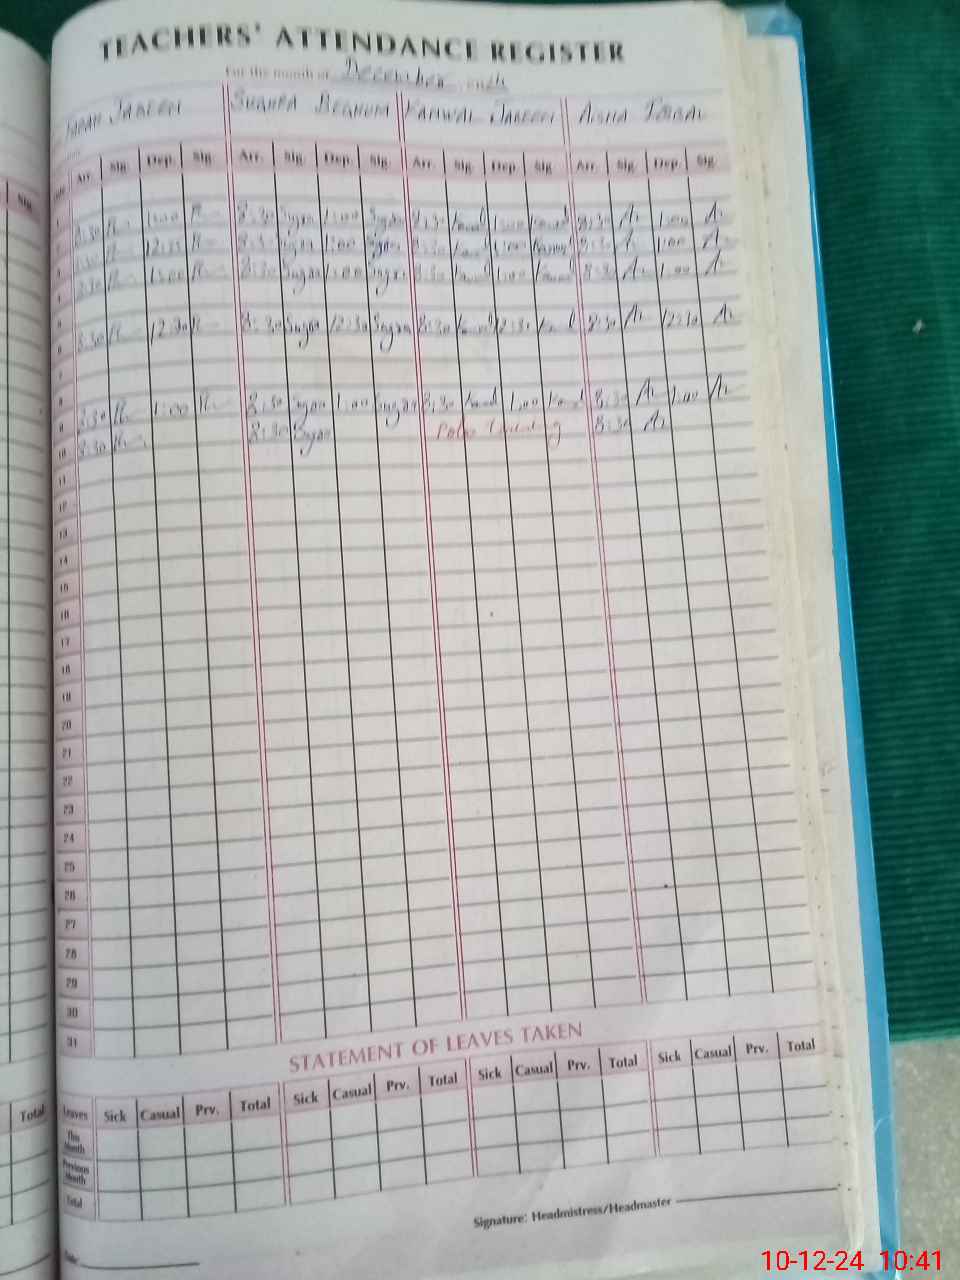 TEACHERS' ATTENDANCE REGISTER
For the month of December
JABEEN SUGHRA BEGHUM KANWAL JABEEN AISHA IQBAL
Sig.
Arr. Sig. Dep. Sig. Arr. Sig. Dep. Sig. Arr. Sig. Dep. Sig. Arr. Sig. Dep. Sig.
1
2 8:30 1:00 8:30 Sugra 1:00 Sugra 8:30 Kanwal 1:00 Kanwal 8:30 1:00
3 8:30 8:30 Sugra 1:00 Sugra 8:30 Kanwal 1:00 Kanwal 8:30 1:00
4 8:30 1:00 8:30 Sugra 1:00 Sugra 8:30 Kanwal 1:00 Kanwal 8:30 1:00
5
6 8:30 12:30 8:30 Sugra 12:30 Sugra 8:30 Kanwal 12:30 Kanwal 8:30 12:30
7
8
9 8:30 1:00 8:30 Sugra 1:00 Sugra 8:30 Kanwal 1:00 Kanwal 8:30 1:00
10 8:30 8:30 Sugra Polio 8:30
11
12
13
14
15
16
17
18
19
20
21
22
23
24
25
26
27
28
29
30
31
STATEMENT OF LEAVES TAKEN
Total
Leaves Sick Casual Prv. Total Sick Casual Prv. Total Sick Casual Prv. Total Sick Casual Prv. Total
This Month
Previous Month
Total
Signature: Headmistress/Headmaster
Date:
10-12-24 10:41